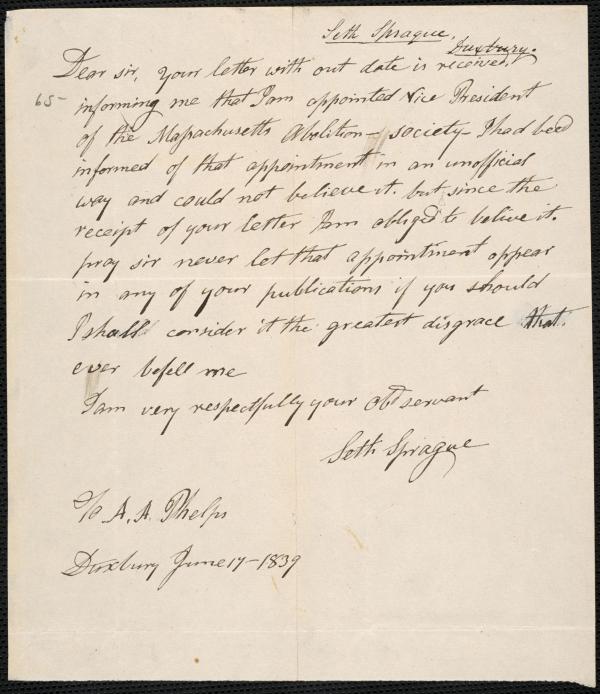 Seth Sprague,
Duxbury.
Dear sir, your letter with out date is received,
65-
informing me that I am appointed Vice President
of the Massachusetts Abolition - society - I had been
informed of that appointment in an unofficial
way and could not believe it. but since the
receipt of your letter I am obliged to belive it.
pray sir never let that appointment appear
in any of your publications if you should
I shall consider it the greatest disgrace that
ever befell me
I am very respectfully your Obt servant
Seth Sprague
To A. A. Phelps
Duxbury June 17 - 1839